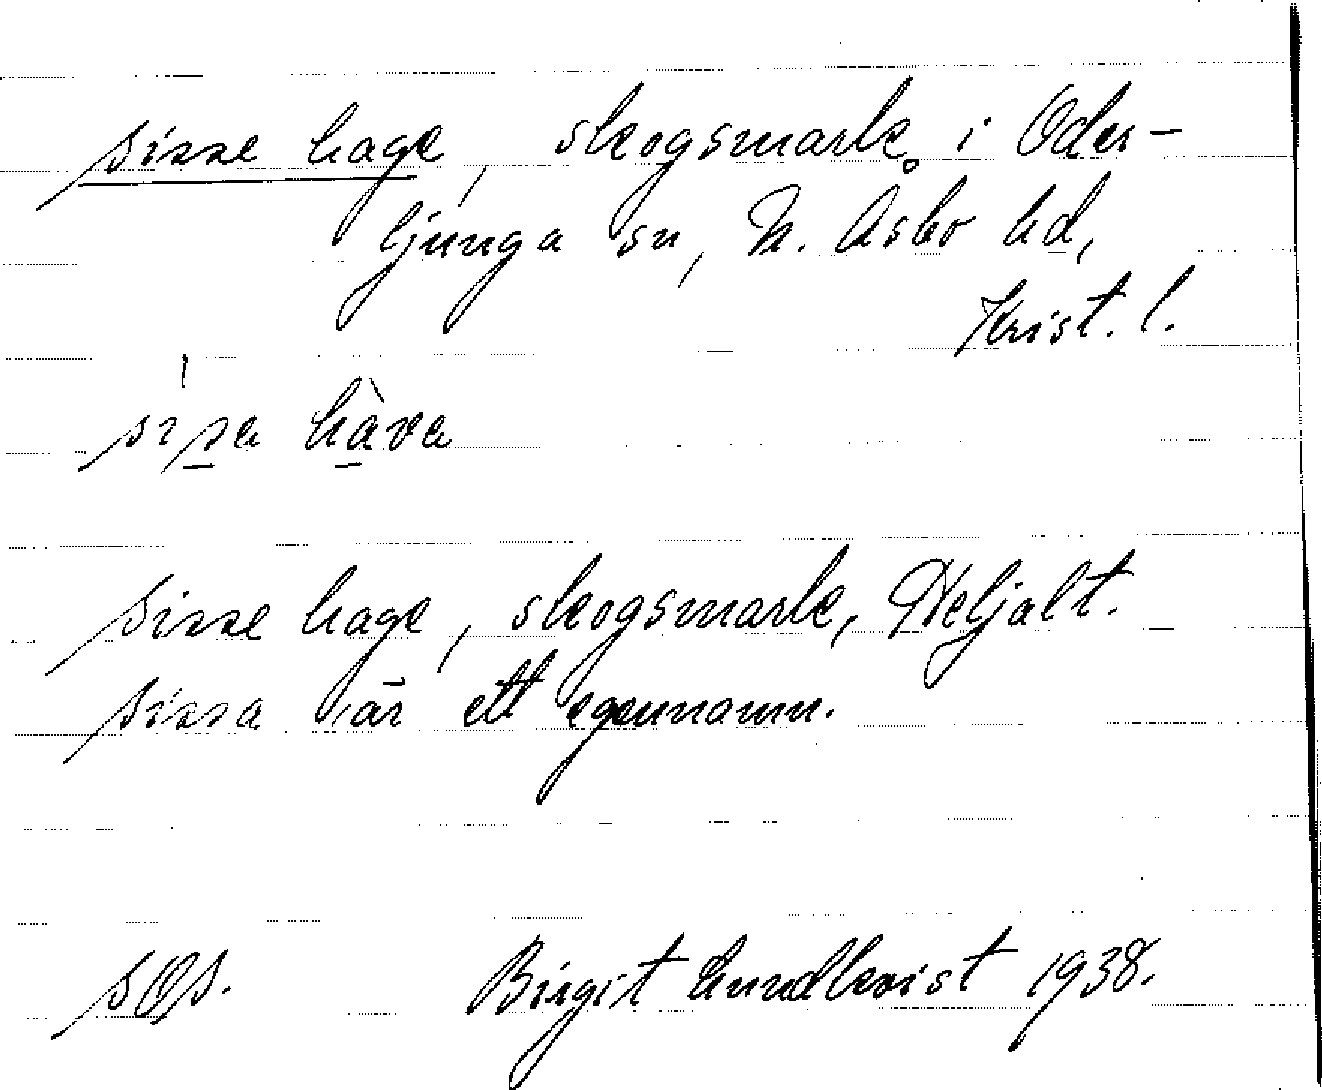 Sisse hage, skogsmark i Oder-
ljunga sn, N. Åsbo hd,
Krist. l.
sisa hàva
Sisse hage, skogsmark,
Sissa är ett egennamn.
Birgit Lundkvist 1938.